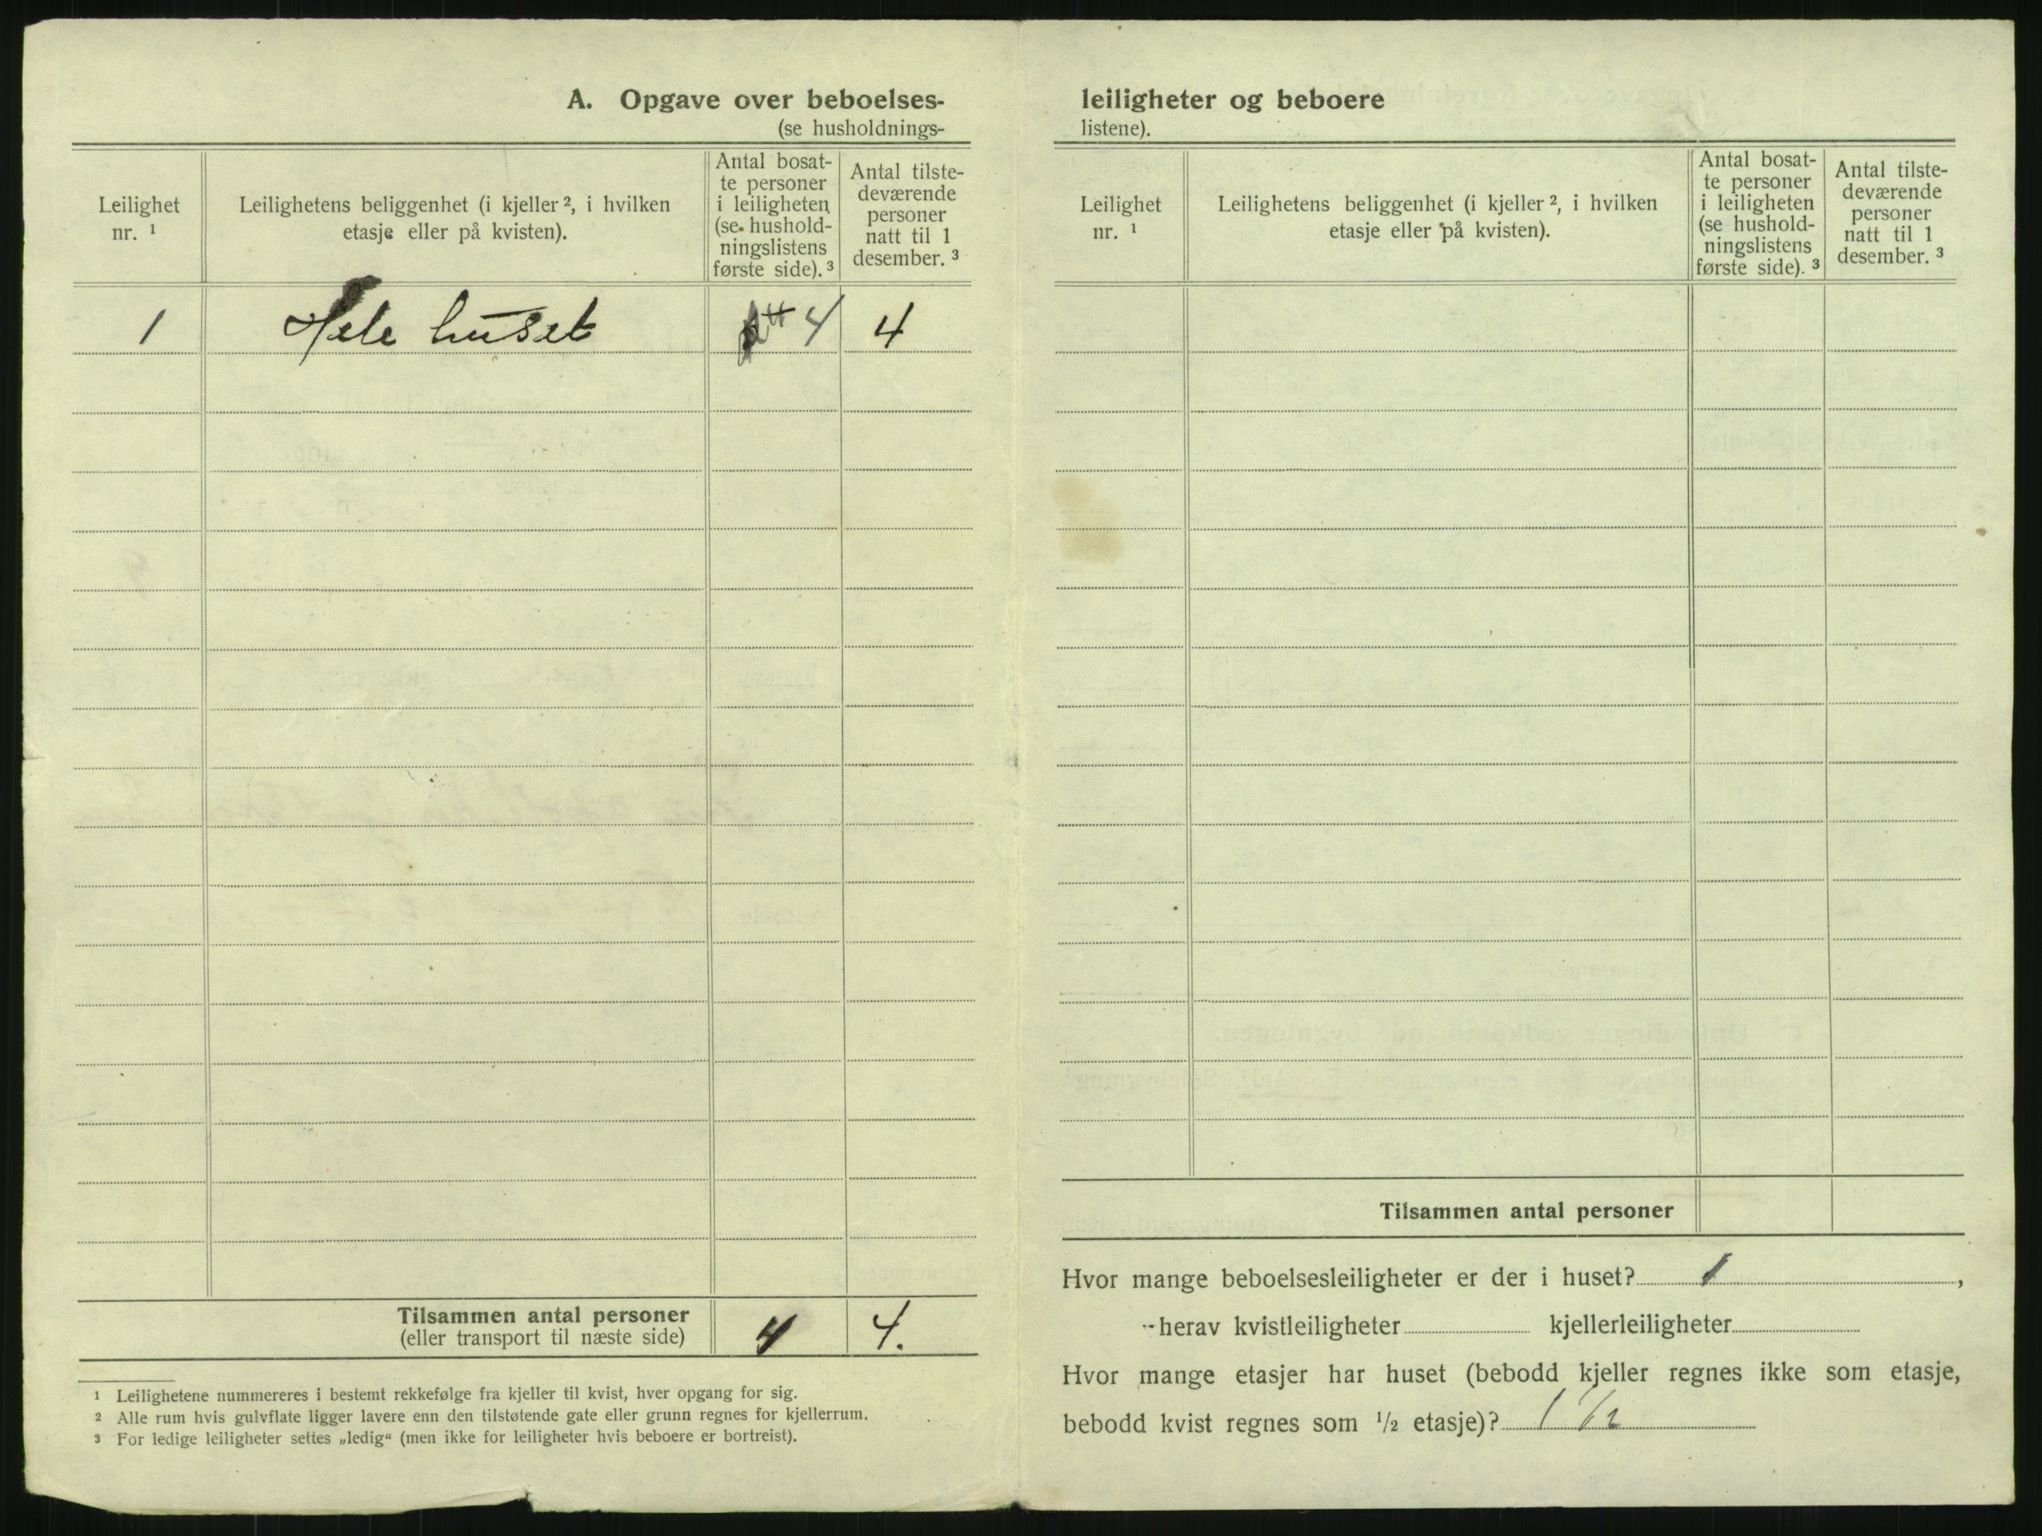 A. Opgave over beboelses-
(se husholdnings-
Leilighet
nr. ¹
Leilighetens beliggenhet (i kjeller ², i hvilken
etasje eller på kvisten).
Antal bosat-
te personer
i leiligheten
(se hushold-
ningslistens
første side). ³
Antal tilste-
deværende
personer
natt til 1
desember. ³
1 Hele huset 4 4
Tilsammen antal personer 4 4.
(eller transport til næste side)
¹ Leilighetene nummereres i bestemt rekkefølge fra kjeller til kvist, hver opgang for sig.
² Alle rum hvis gulvflate ligger lavere enn den tilstøtende gate eller grunn regnes for kjellerrum.
³ For ledige leiligheter settes „ledig“ (men ikke for leiligheter hvis beboere er bortreist).
leiligheter og beboere
listene).
Leilighet
nr. ¹
Leilighetens beliggenhet (i kjeller ², i hvilken
etasje eller på kvisten).
Antal bosat-
te personer
i leiligheten
(se hushold-
ningslistens
første side). ³
Antal tilste-
deværende
personer
natt til 1
desember. ³
Tilsammen antal personer
Hvor mange beboelsesleiligheter er der i huset? 1 ,
-herav kvistleiligheter kjellerleiligheter
Hvor mange etasjer har huset (bebodd kjeller regnes ikke som etasje,
bebodd kvist regnes som ½ etasje)? 1 ½